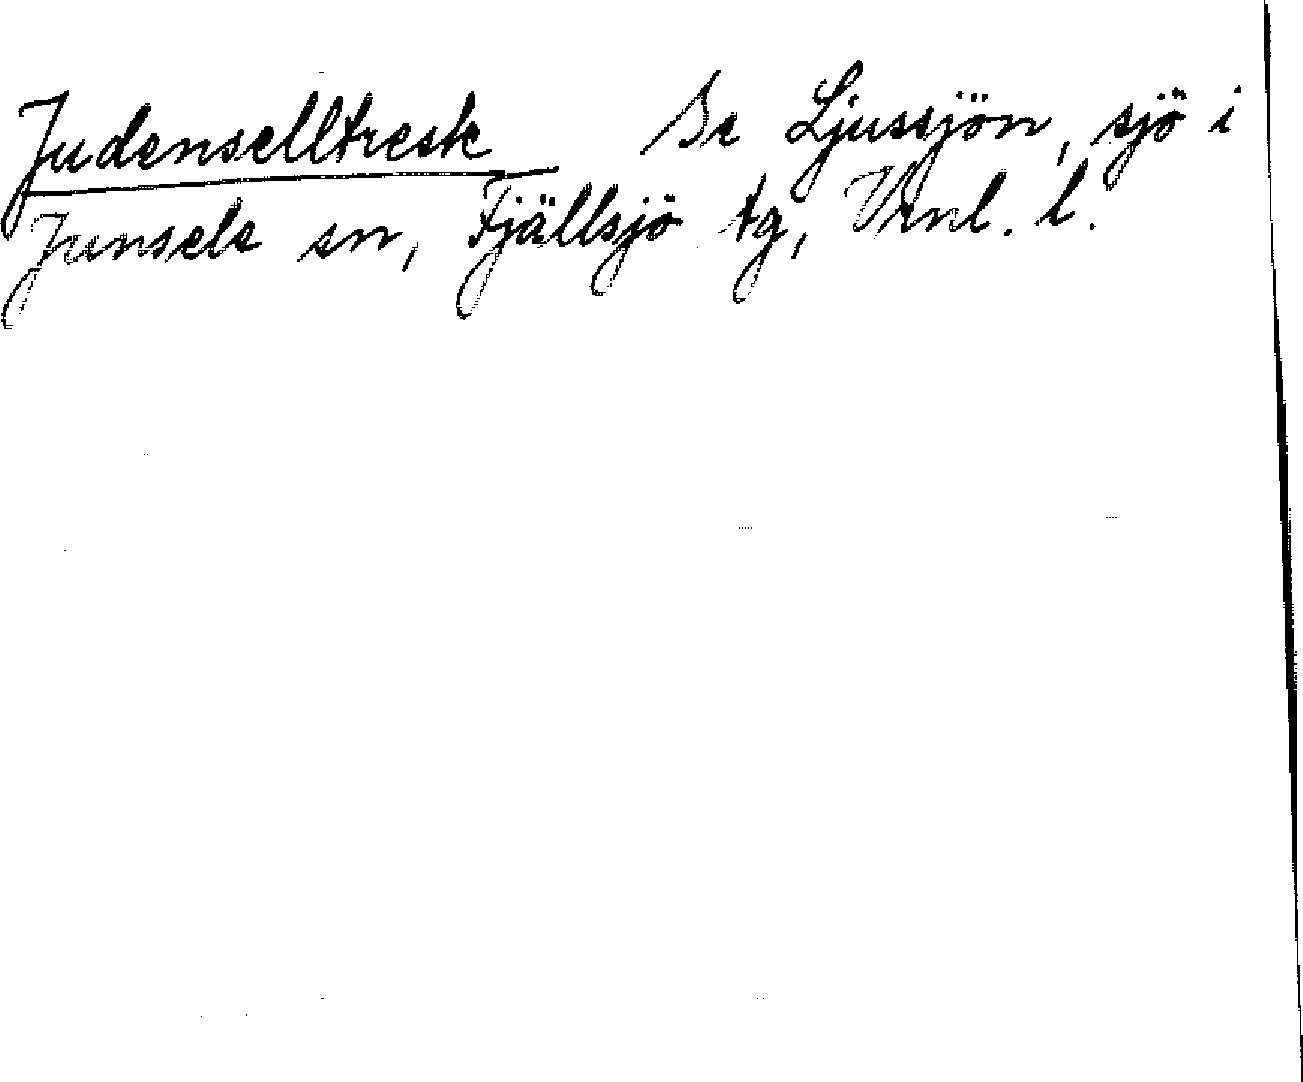 Judensellträsk Se Ljussjön, sjö i
Junsele sn, Fjällsjö tg, Vnl. l.